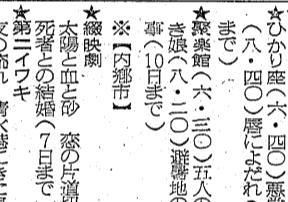 ★ひかり座（六・四〇）悪
（八・四〇）唇によだれ
まで）
★聚楽館（六・三〇）五人の
き娘（八・二〇）避暑地の
事（10日まで）
※【内郷市】
★綴映劇
太陽と血と砂　恋の片道切
死者との結婚（７日まで
★第二イワキ